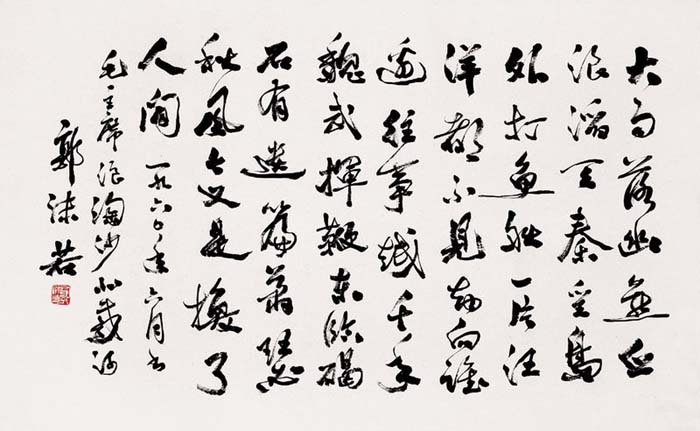 大雨落幽燕白
浪滔天秦皇島
外打魚船一片汪
洋都不見知向誰
邊往事越千年
魏武揮鞭東臨碣
石有遺篇蕭瑟
秋風今又是換了
人間 一九六年六月書
毛主席浪淘沙北戴河
郭沫若